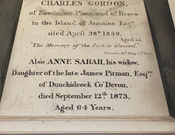 CHARLES GORDON,
of Place and of Braco
in the Island of Jamaica Esqr.
died April 28th 1839,
Aged 54
"The Memory of the Just is blessed."
Also ANNE SARAH, his widow.
Daughter of the late James Pitman, Esqre.
of Dunchideock Co. Devon,
died September 12th 1873,
Aged 64 Years.